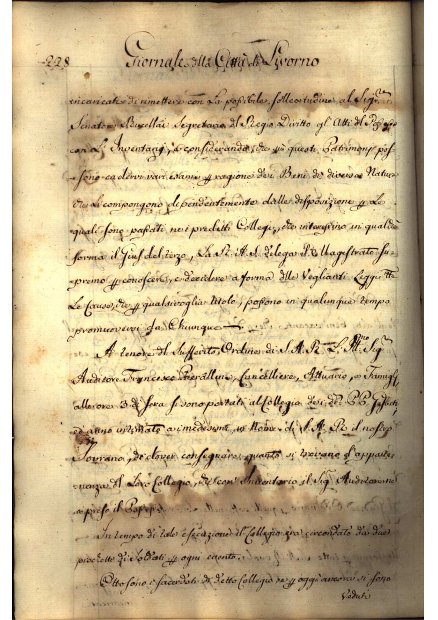 228 Giornale della Città di Livorno
incaricati di rimettere con la possibile sollecitudine al Sigr
Senator Rucellai Segretario del Regio Diritto gli Atti del
con l' Inventarj, e considerando, che in questi Patrimonj pos-
sono cadervi varie ragione dei Beni de diversa Natura
che lo compongono dependentemente dalle disposizione le
quali sono passati nei predetti Collegi, che interessino in qualche
forma il Gius del terzo, La R. A. S. delega il Magistrato Su-
premo conoscere, e decidere a forma delle Veglianti Leggi
Le Cause, che qualsivoglia titolo, possono in qualunque tempo
promuoversi da Chiunque
A tenore del Sufferito Ordine di S. A. R. L' Sigr
Auditore Francesco Pierallini, Cancelliere, Attuario, e
alle ore 3 di sera si sono portati al Collegio dei PP
ed anno intimato ai medesimi, in Nome di S. A. R. il nostro
Sovrano, de dover consegnare quanto si trovano d' appar-
tenenza del Loro Collegio, con Inventario il Sigr Auditore
a preso il
In tempo di tale esecuzione il Collegio era circondato da due
di Soldati ogni evento.
Otto sono i sacerdoti di detto Collegio oggi ancora si sono
Veduti